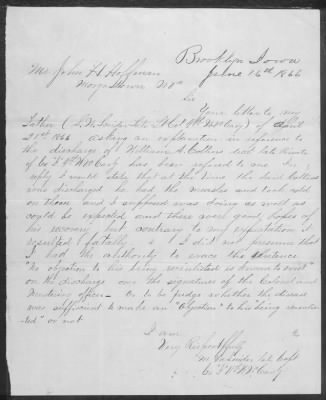 Brooklyn Iowa
June 16th 1866
Mr John H Hoffman
Morgantown
Sir
Your letter to my
Father ( of April
21st 1866 asking an explanation in reference to
the discharge of William A. Collins late Private
of Co F has been referred to me In
reply I would state that at the time the said Collins
was discharged he had the measles and took cold
on them and I supposed was doing as well as
could be expected and there were good hopes of
his recovery, but contrary to my expectation it
resulted fatally I did not presume that
I had the authority to erase the sentence
"No objection to his being reenlisted is known to exist"
on the discharge over the signatures of the Colonel and
Medicine officer Or to be judge whether the disease
was sufficient to make an "objection" to his being reenlis
ted" or not
I am
Very Respectfully
late Capt
Co F